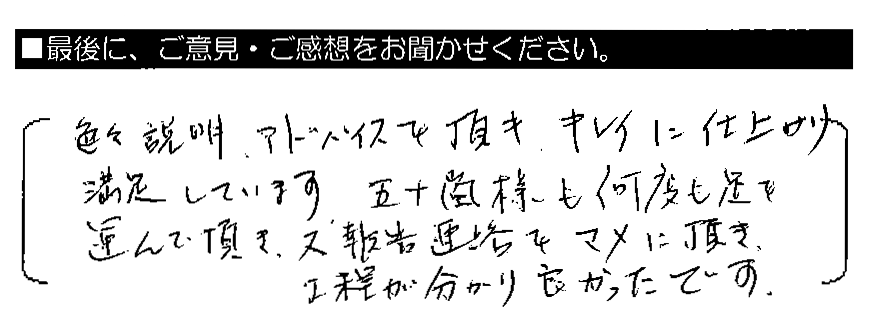 ■最後に、ご意見・ご感想をお聞かせください。
色々説明、アドバイスを頂き、キレイに仕上がり
満足しています 五十嵐様も何度も足を
運んで頂き、又報告連絡をマメに頂き、
工程が分かり良かったです。